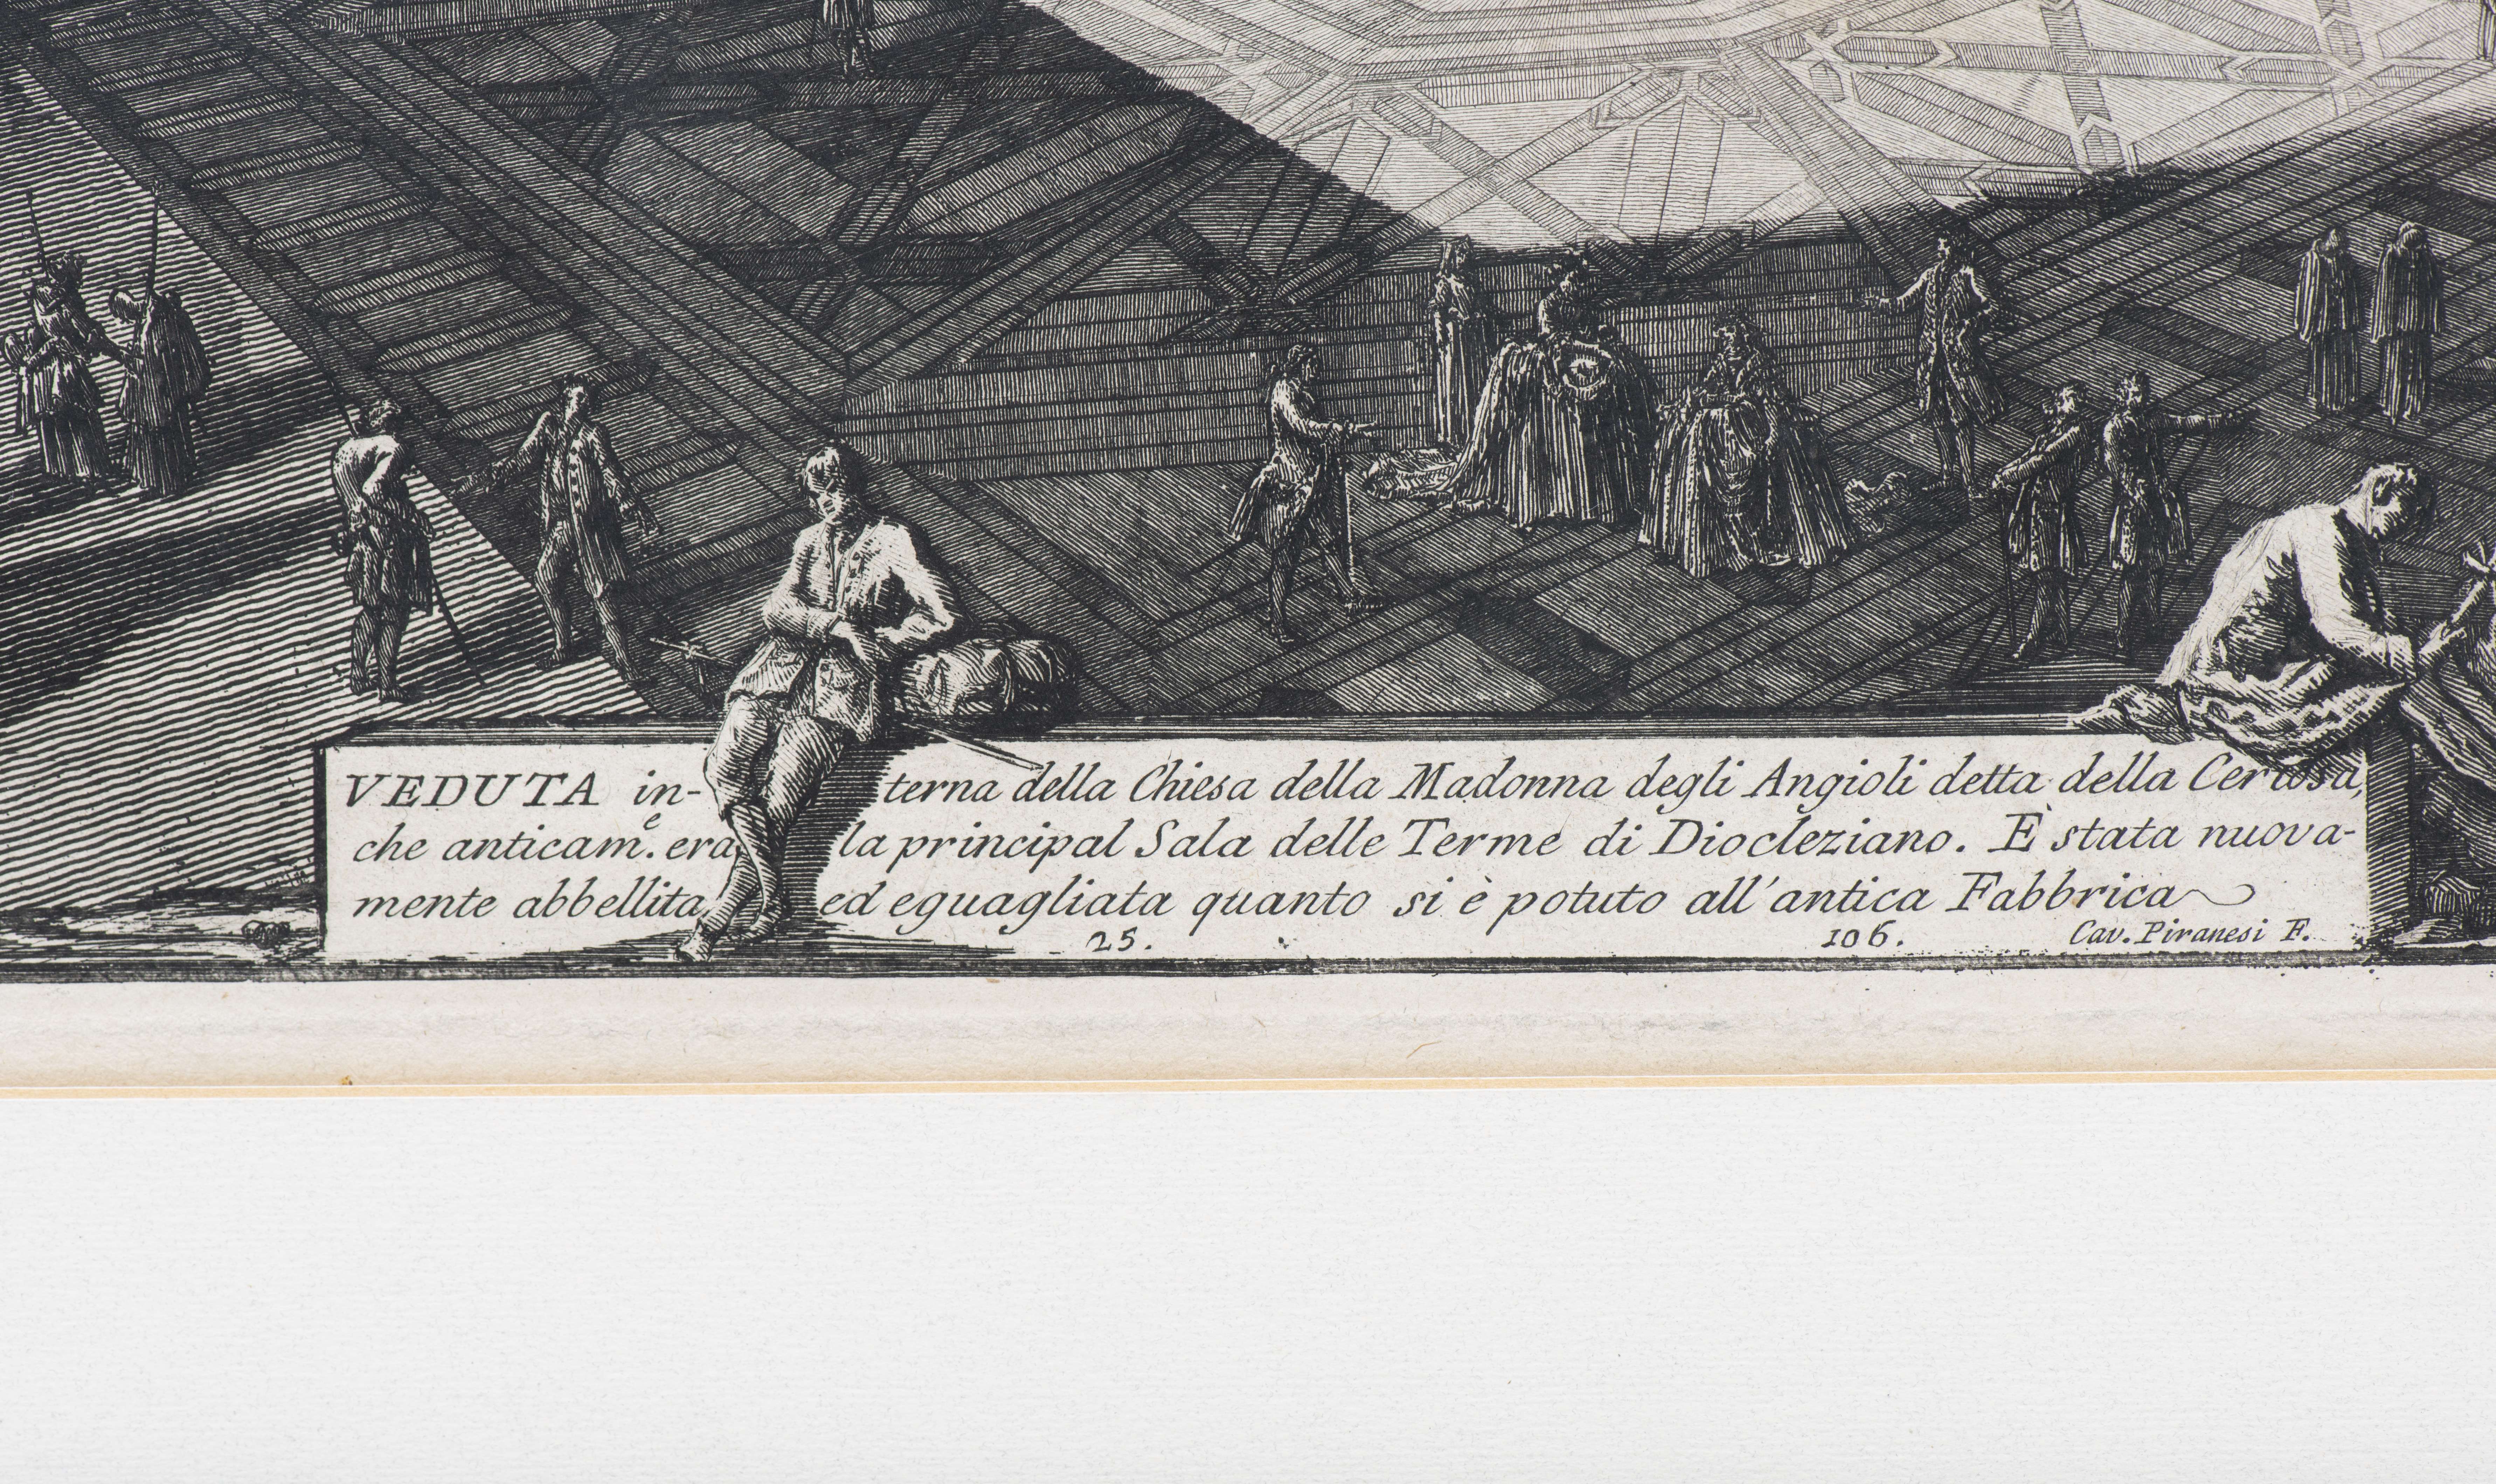 VEDUTA in- terna della Chiesa della Madonna degli Angioli detta della Certosa,
che anticam.e era la principal Sala delle Terme di Diocleziano. È stata nuova-
mente abbellita, ed eguagliata quanto si è potuto all'antica Fabbrica
25. 106. Cav. Piranesi F.